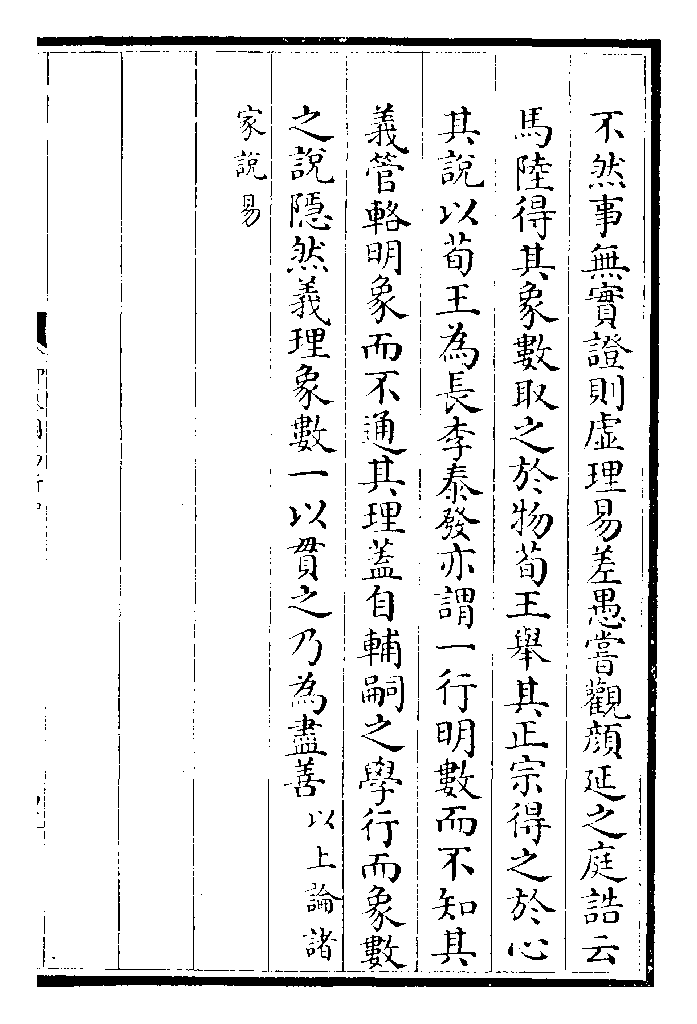 不然事無實證則虛理易差愚嘗觀顔延之庭誥云
馬陸得其象數取之於物荀王舉其正宗得之於心
其說以荀王為長李泰發亦謂一行明數而不知其
義管輅明象而不通其理蓋自輔嗣之學行而象數
之說隱然義理象數一以貫之乃為盡善以上論諸
家說易